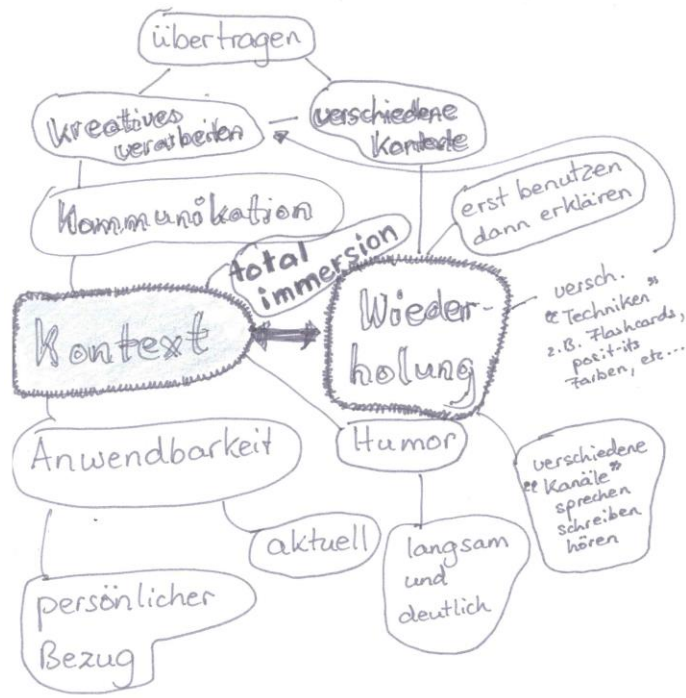 übertragen
kreatives
verarbeiten
verschiedene
Kontexte
Kommunikation
erst benutzen
dann erklären
total
immersion
Kontext
Wieder-
holung
versch.
"Techniken"
z.B. Flashcards,
posit-its
Farben, etc...
Anwendbarkeit
Humor
verschiedene
"Kanäle"
sprechen
schreiben
hören
aktuell
langsam
und
deutlich
persönlicher
Bezug